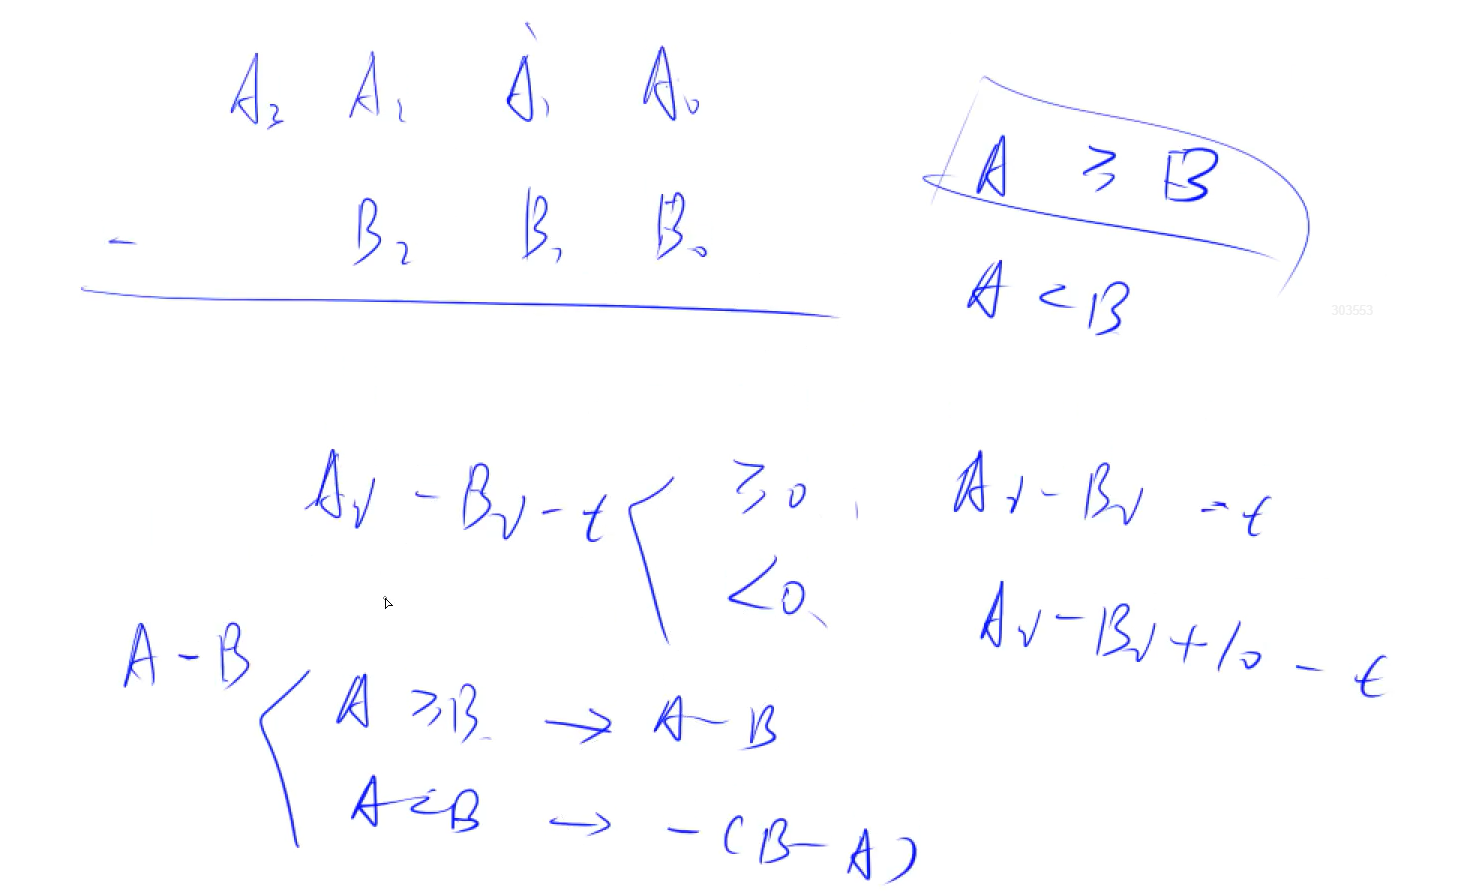 A₃ A₂ A₁ A₀
- B₂ B₁ B₀
A ≥ B
A < B
303553
Aᵢ - Bᵢ - t
≥0, Aᵢ - Bᵢ - t
<0, Aᵢ - Bᵢ + 10 - t
A - B
A ≥ B → A - B
A < B → -(B - A)